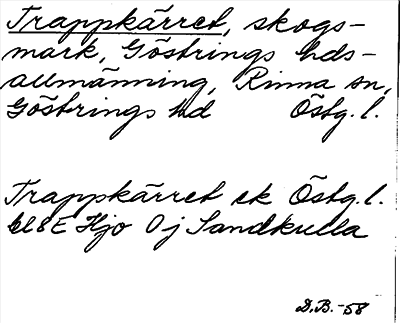 Trappkärret, skogs-
mark, Göstrings hds-
allmänning, Rinna sn,
Göstrings hd Östg. l.
Trappkärret ek Östg. l.
bl 8E Hjo 0j Sandkulla
D.B. -58